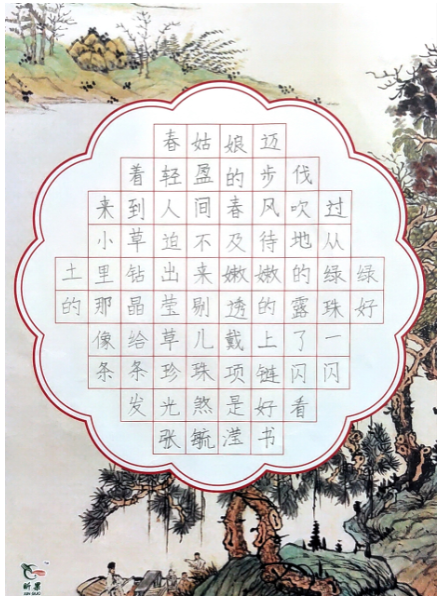 春姑娘迈
着轻盈的步伐
来到人间春风吹过
小草迫不及待地从
土里钻出来嫩嫩的绿绿
的那晶莹剔透的露珠好
像给草儿戴上了一
条条珍珠项链闪闪
发光煞是好看
张毓滢书
昕墨